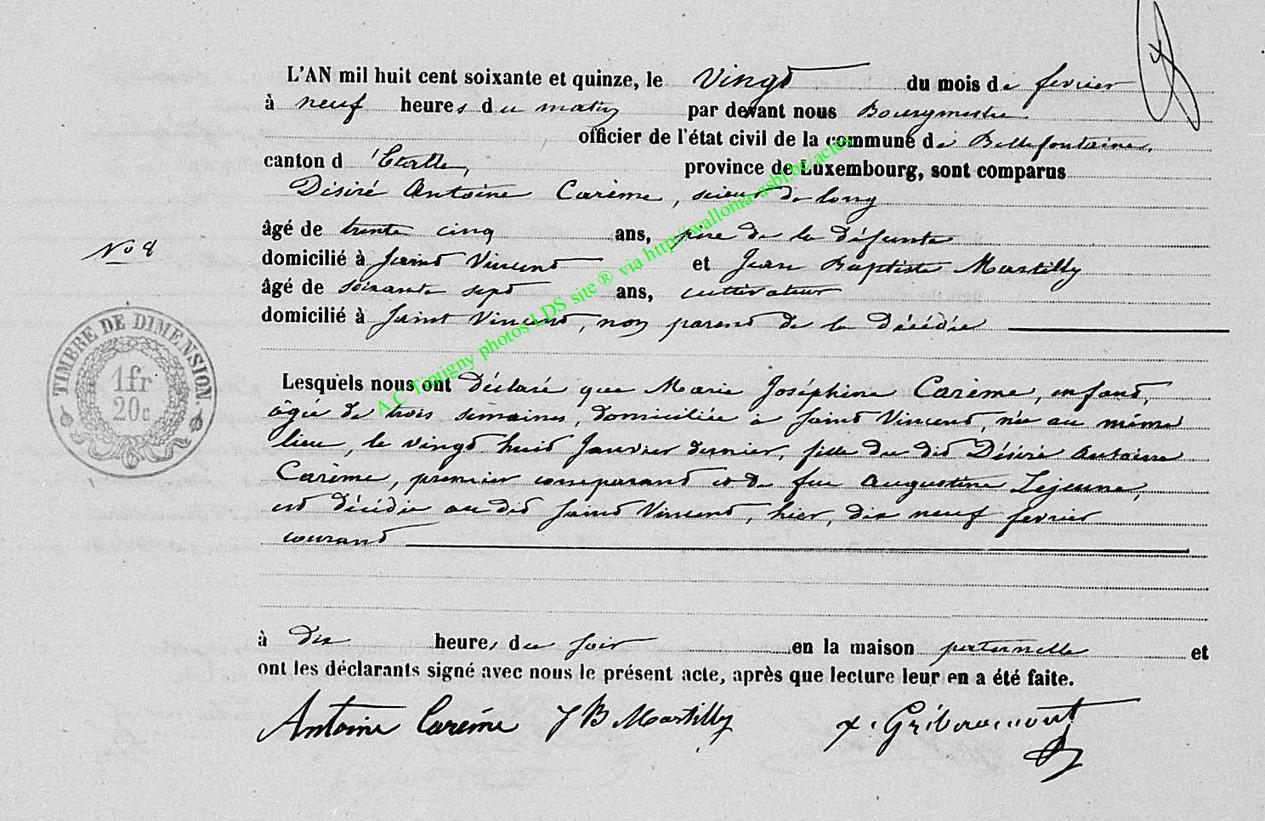 L'AN mil huit cent soixante et quinze, le Vingt du mois de fevrier
à neuf heures du matin par devant nous Bourgmestre
officier de l'état civil de la commune de Bellefontaine,
canton d'Etalle, province de Luxembourg, sont comparus
Désiré Antoine Carème, scieur de long
âgé de trente cinq ans, père de la défunte
N° 8
domicilié à Saint Vincent et Jean Baptiste Martilly
âgé de soixante sept ans, cultivateur
domicilié à Saint Vincent, non parent de la décédée
TIMBRE DE DIMENSION
1fr
20c
Lesquels nous ont déclaré que Marie Joséphine Carème, enfant,
âgée de trois semaines, domiciliée à Saint Vincent, née au même
lieu, le vingt huit Janvier dernier, fille du dit Désiré Antoine
Carème, premier comparant et de fue Augustine Lejeune,
est décédée au dit Saint Vincent, hier, dix neuf fevrier
courant
à dix heures du soir en la maison paternelle et
ont les déclarants signé avec nous le présent acte, après que lecture leur en a été faite.
Antoine Carème J B Martilly
A.C Tintigny photos LDS site ® via http://walloma-asbl.be/actes